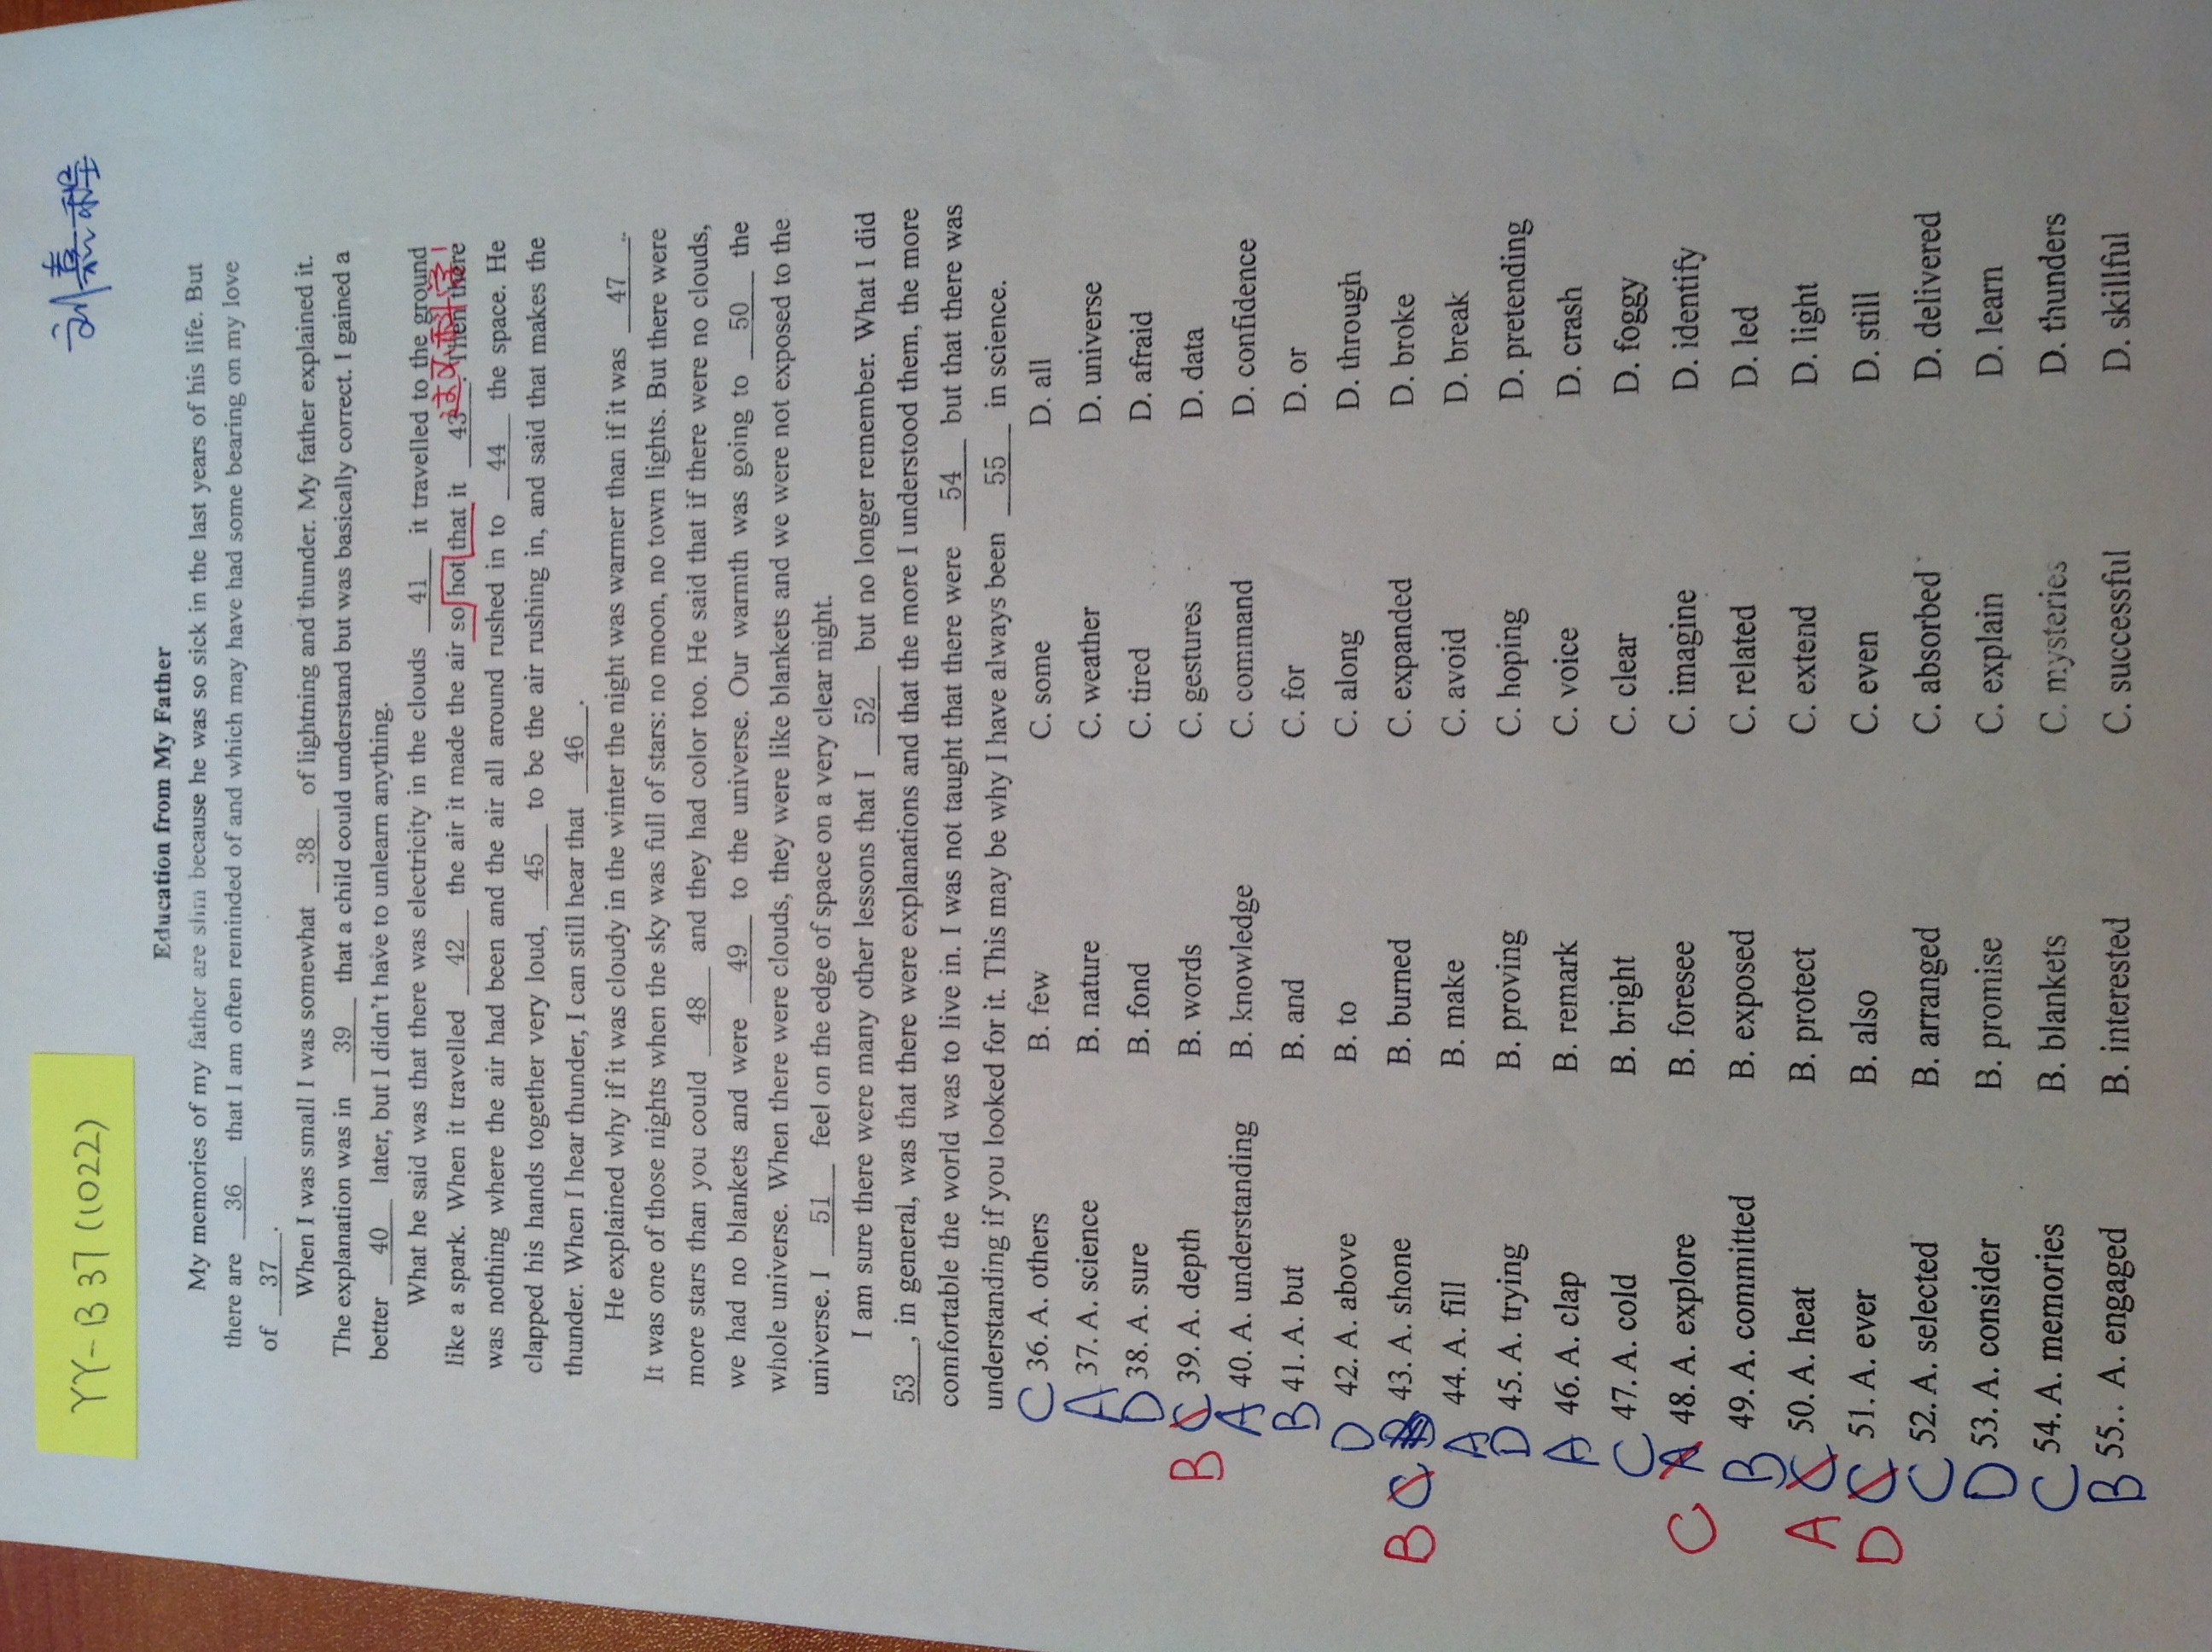 YY-B 37 (1022)
刘嘉程
Education from My Father
My memories of my father are slim because he was so sick in the last years of his life. But
there are 36 that I am often reminded of and which may have had some bearing on my love
of 37 .
When I was small I was somewhat 38 of lightning and thunder. My father explained it.
The explanation was in 39 that a child could understand but was basically correct. I gained a
better 40 later, but I didn't have to unlearn anything.
What he said was that there was electricity in the clouds 41 it travelled to the ground
过又科学!
like a spark. When it travelled 42 the air it made the air so hot that it 43 . Then there
was nothing where the air had been and the air all around rushed in to 44 the space. He
clapped his hands together very loud, 45 to be the air rushing in, and said that makes the
thunder. When I hear thunder, I can still hear that 46 .
He explained why if it was cloudy in the winter the night was warmer than if it was 47 ..
It was one of those nights when the sky was full of stars: no moon, no town lights. But there were
more stars than you could 48 and they had color too. He said that if there were no clouds,
we had no blankets and were 49 to the universe. Our warmth was going to 50 the
whole universe. When there were clouds, they were like blankets and we were not exposed to the
universe. I 51 feel on the edge of space on a very clear night.
I am sure there were many other lessons that I 52 but no longer remember. What I did
53 , in general, was that there were explanations and that the more I understood them, the more
comfortable the world was to live in. I was not taught that there were 54 but that there was
understanding if you looked for it. This may be why I have always been 55 in science.
C 36. A. others B. few C. some D. all
A 37. A. science B. nature C. weather D. universe
D 38. A. sure B. fond C. tired D. afraid
B C 39. A. depth B. words C. gestures D. data
A 40. A. understanding B. knowledge C. command D. confidence
B 41. A. but B. and C. for D. or
D 42. A. above B. to C. along D. through
B C B 43. A. shone B. burned C. expanded D. broke
A 44. A. fill B. make C. avoid D. break
D 45. A. trying B. proving C. hoping D. pretending
A 46. A. clap B. remark C. voice D. crash
C 47. A. cold B. bright C. clear D. foggy
C A 48. A. explore B. foresee C. imagine D. identify
B 49. A. committed B. exposed C. related D. led
A C 50. A. heat B. protect C. extend D. light
D C 51. A. ever B. also C. even D. still
C 52. A. selected B. arranged C. absorbed D. delivered
D 53. A. consider B. promise C. explain D. learn
C 54. A. memories B. blankets C. mysteries D. thunders
B 55.. A. engaged B. interested C. successful D. skillful